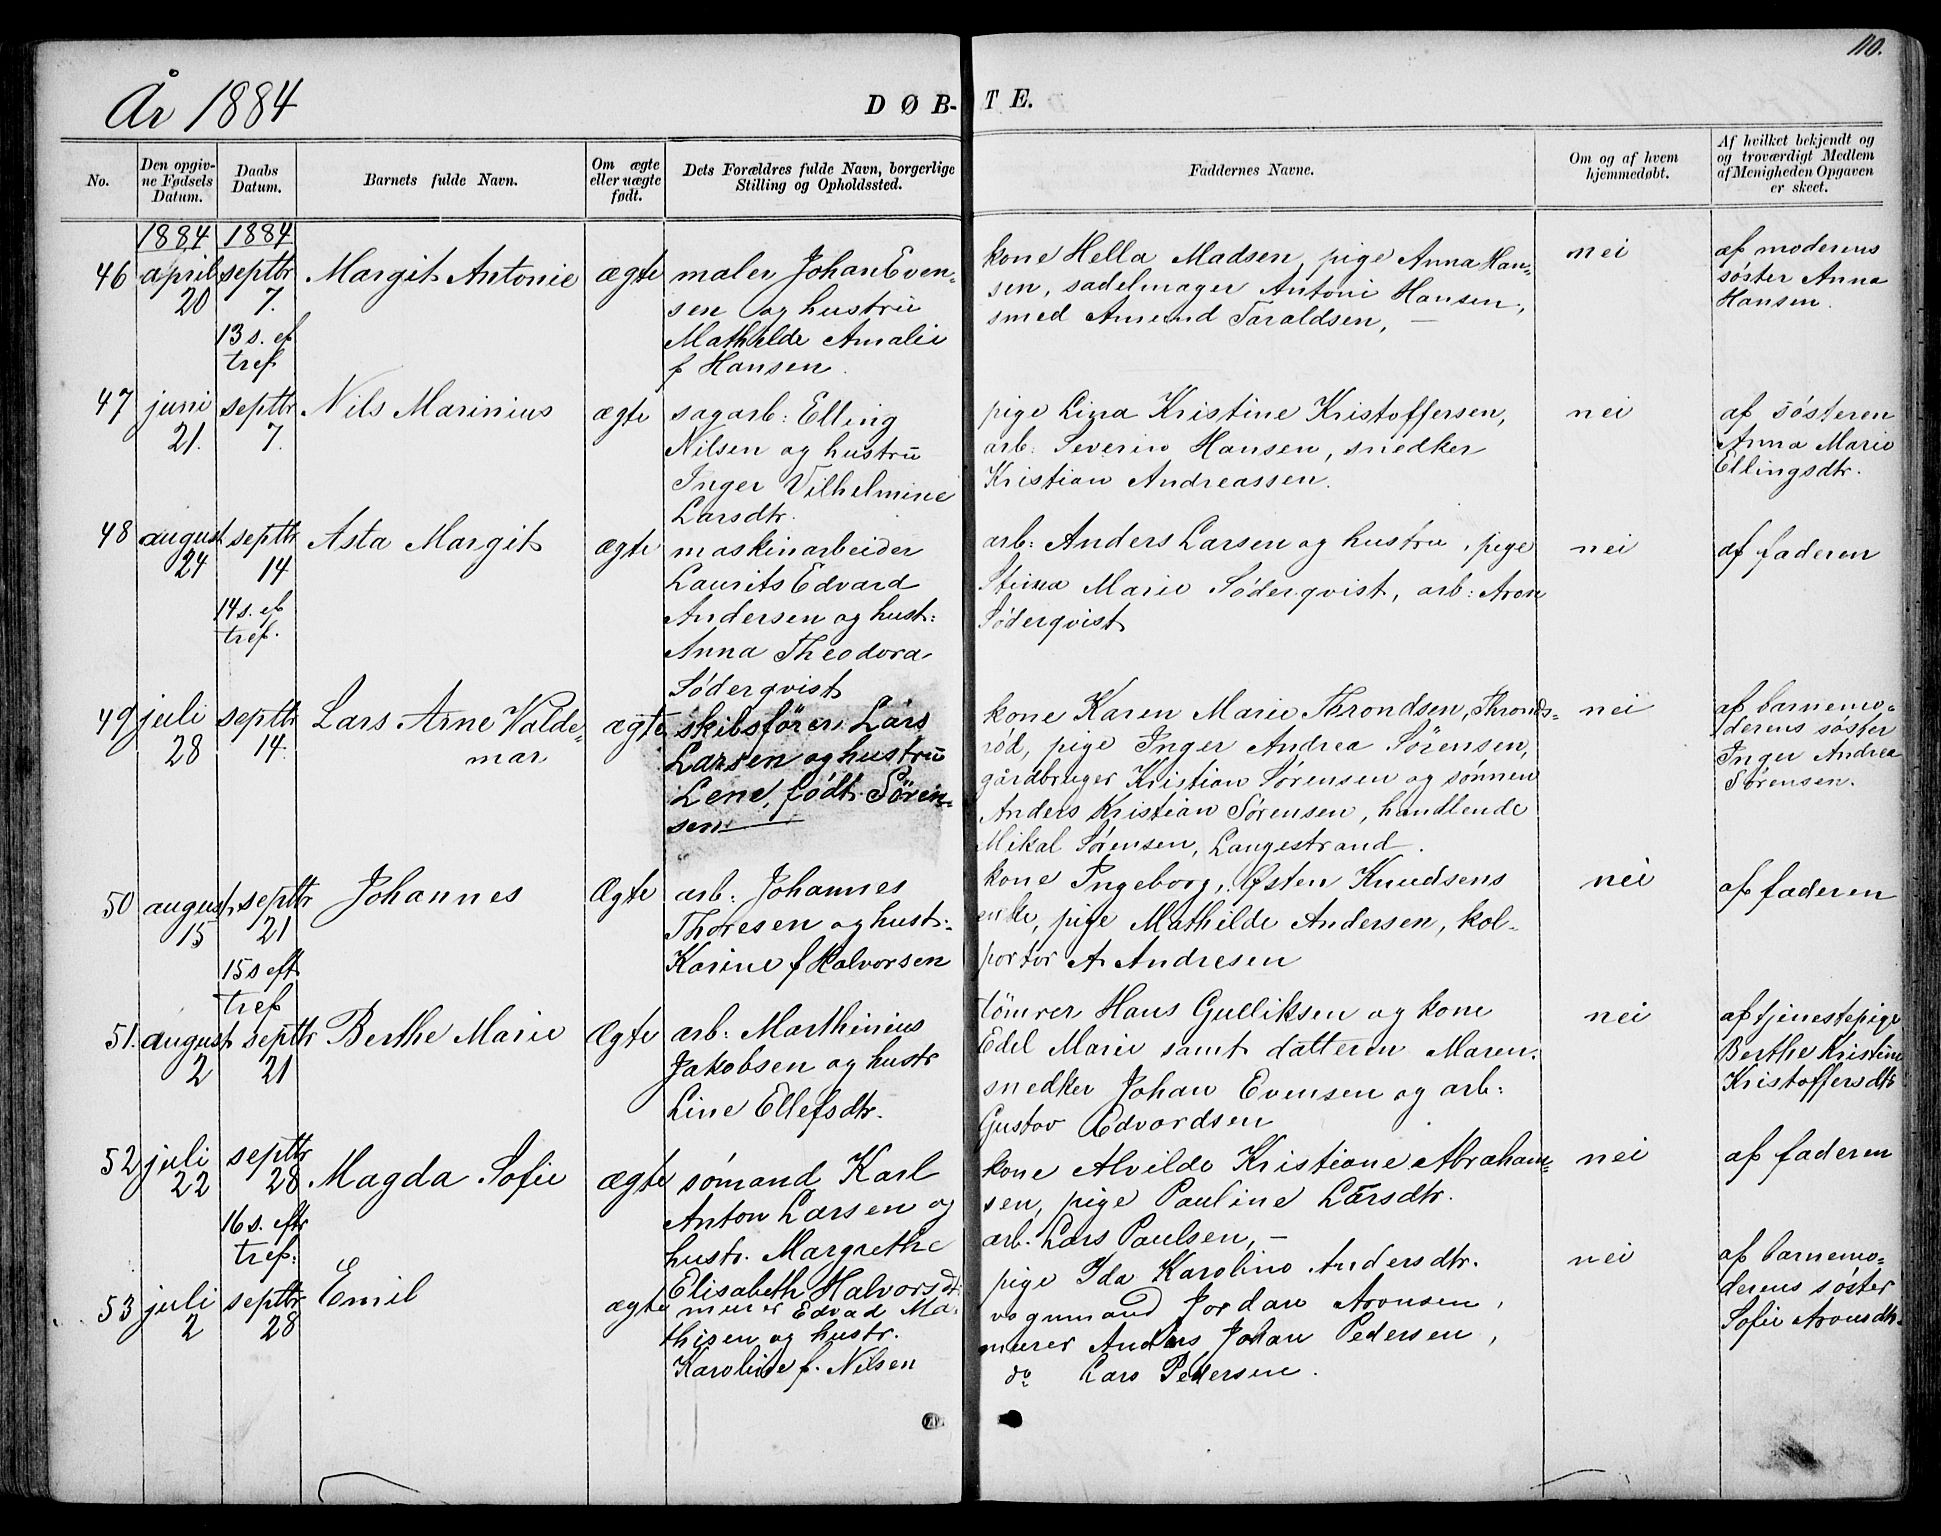 110.
År 1884
DØB-TE.
No.
Den opgiv-
ne Fødsels
Datum.
Daabs
Datum.
Barnets fulde Navn.
Om ægte
eller uægte
født.
Dets Forældres fulde Navn, borgerlige
Stilling og Opholdssted.
Faddernes Navne.
Om og af hvem
hjemmedøbt.
Af hvilket bekjendt og
og troværdigt Medlem
af Menigheden Opgaven
er skeet.
1884 1884
46 april 20 septbr 7. 13 s. ef tref
Margit Antonie
ægte
maler Johan Even-
sen og hustru
Mathilde Amalie
f Hansen.
kone Hella Madsen, pige Anna Han-
sen, sadelmager Antoni Hansen,
smed Amund Taraldsen, —
nei
af moderens
søster Anna
Hansen.
47 juni 21. septbr 7.
Nils Marinius
ægte
sagarb: Elling
Nilsen og hustru
Inger Vilhelmine
Larsdtr.
pige Lina Kristine Kristoffersen,
arb: Severin Hansen, snedker
Kristian Andreassen.
nei
af søsteren
Anna Marie
Ellingsdtr.
48 august 24 septbr 14 14 s. ef tref.
Asta Margit
ægte
maskinarbeider
Laurits Edvard
Andersen og hust:
Anna Theodora
Söderqvist
arb: Anders Larsen og hustru, pige
Stina Marie Söderqvist, arb: Aron
Söderqvist
nei
af faderen
49 juli 28 septbr 14.
Lars Arne Valde-
mar
ægte
skibsfører Lars
Larsen og hustru
Lene, født Sören-
sen.
kone Karen Marie Throndsen, Thronds-
rød, pige Inger Andrea Sörensen,
gårdbruger Kristian Sørensen og sønnen
Anders Kristian Sørensen, handlende
Mikal Sørensen, Langestrand.
nei
af barnemo-
derens søster
Inger Andrea
Sørensen.
50 august 15 septbr 21 15 s eft tref
Johannes
Ægte
arb: Johannes
Thoresen og hust:
Karine f Halvorsen
kone Ingeborg, Østen Knudsens
enke, pige Mathilde Andersen, kol-
portör A Andresen
nei
af faderen
51. august 2 septbr 21
Berthe Marie
Ægte
arb: Marthinius
Jakobsen og hustr
Line Ellefsdtr.
tömrer Hans Gulliksen og kone
Edel Marie samt datteren Maren.
snedker Johan Evensen og arb:
Gustav Edvardsen
nei
af tjenestepige
Berthe Kristine
Kristoffersdtr
52 juli 22 septbr 28 16 s. eftr tref.
Magda Sofie
ægte
sømand Karl
Anton Larsen og
hustr. Margrethe
Elisabeth Halvorsdtr
kone Alvilde Kristiane Abraham-
sen, pige Pauline Larsdtr.
arb. Lars Paulsen, —
nei
af faderen
53 juli 2 septbr 28
Emil
ægte
murer Edvad Ma-
thisen og hustr.
Karoline f. Nilsen
pige Ida Karoline Andersdtr.
vognmand Jordan Aronsen,
murer Anders Johan Pedersen,
do Lars Pedersen.
nei
af barnemo-
derens søster
Sofie Aronsdtr.